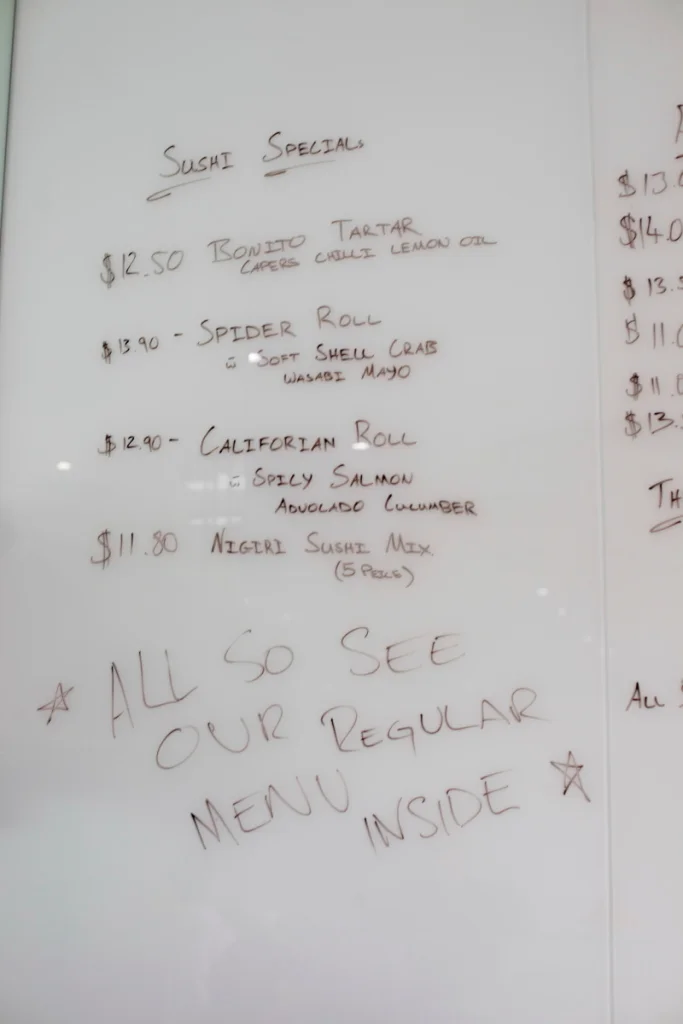 Sushi Specials
$12.50 Bonito Tartar
Capers Chilli Lemon Oil
$13.90 - Spider Roll
w Soft Shell Crab
Wasabi Mayo
$12.90 - Califorian Roll
w Spicy Salmon
Advolado Cucumber
$11.80 Nigiri Sushi Mix
(5 
ALL SO SEE
OUR REGULAR
MENU INSIDE
$13.
$14.0
$13.5
$11.0
$11.0
$13.
TH
All